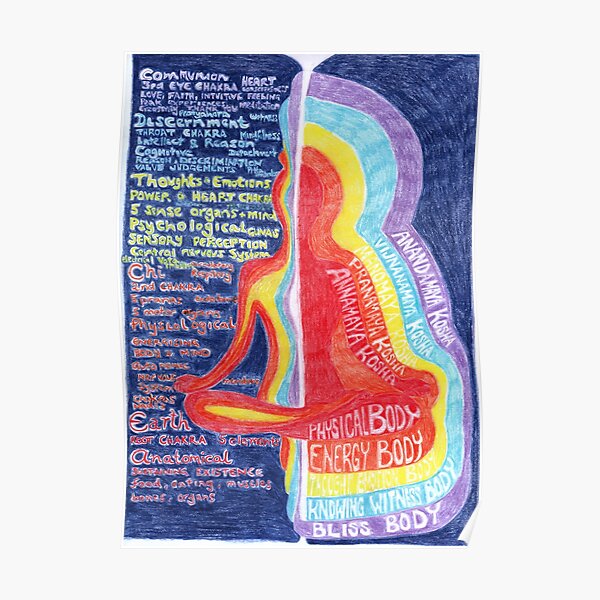 Communion HEART
3rd EYE CHAKRA
LOVE, FAITH, INTUITIVE FEELING
Peak experiences meditation
Pranyahara witness
Discernment
THROAT CHAKRA Mindfulness
Intellect & Reason
Cognitive Detachment
REASON & DISCRIMINATION
VALUE JUDGEMENTS
Thoughts + Emotions
POWER + HEART CHAKRA
5 sense organs + mind
Psychological GUNAS
SENSORY PERCEPTION
Central nervous System
Chi
2nd CHAKRA
5 pranas
5 motor organs
Physiological
ENERGISING
BODY & MIND
NERVOUS
System
Earth
ROOT CHAKRA 5 elements
Anatomical
SUSTAINING EXISTENCE
food, eating, muscles
bones, organs
ANANDAMAYA KOSHA
VIJNANAMAYA KOSHA
MANOMAYA KOSHA
PRANAMAYA KOSHA
ANNAMAYA KOSHA
PHYSICAL BODY
ENERGY BODY
THOUGHT EMOTION BODY
KNOWING WITNESS BODY
BLISS BODY